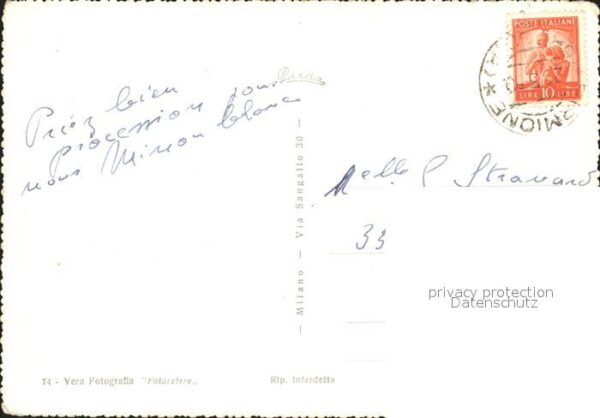 POSTE ITALIANE
LIRE 10 LIRE
MIONE
Priez bien
procession pour
nous Mimon blanc
Melle Stravard
33
privacy protection
Datenschutz
— Milano — Via Sangallo 30 —
74 - Vera Fotografia "Fotocelere„
Rip. interdetta